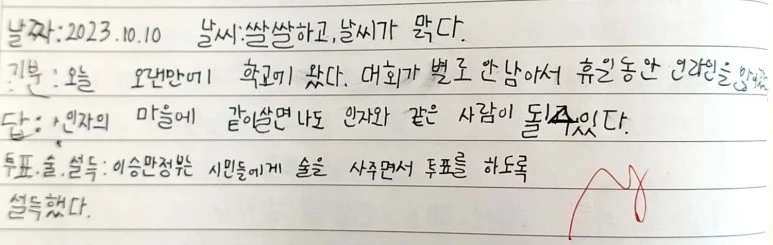 날짜: 2023.10.10 날씨: 쌀쌀하고, 날씨가 맑다.
기분: 오늘 오랜만에 학교에 왔다. 대회가 별로 안 남아서 휴일동안 인라인을
답: 인자의 마을에 같이살면 나도 인자와 같은 사람이 될 수 있다.
투표.술.설득: 이승만정부는 시민들에게 술을 사주면서 투표를 하도록
설득했다.